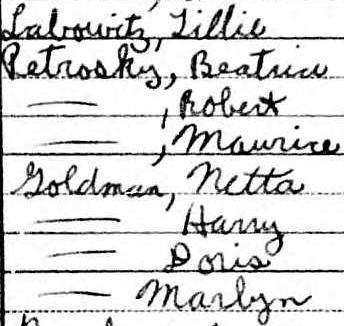 Labowitz, Tillie
Petrosky, Beatrice
— , Robert
— , Maurice
Goldman, Netta
— Harry
— Doris
— Marlyn